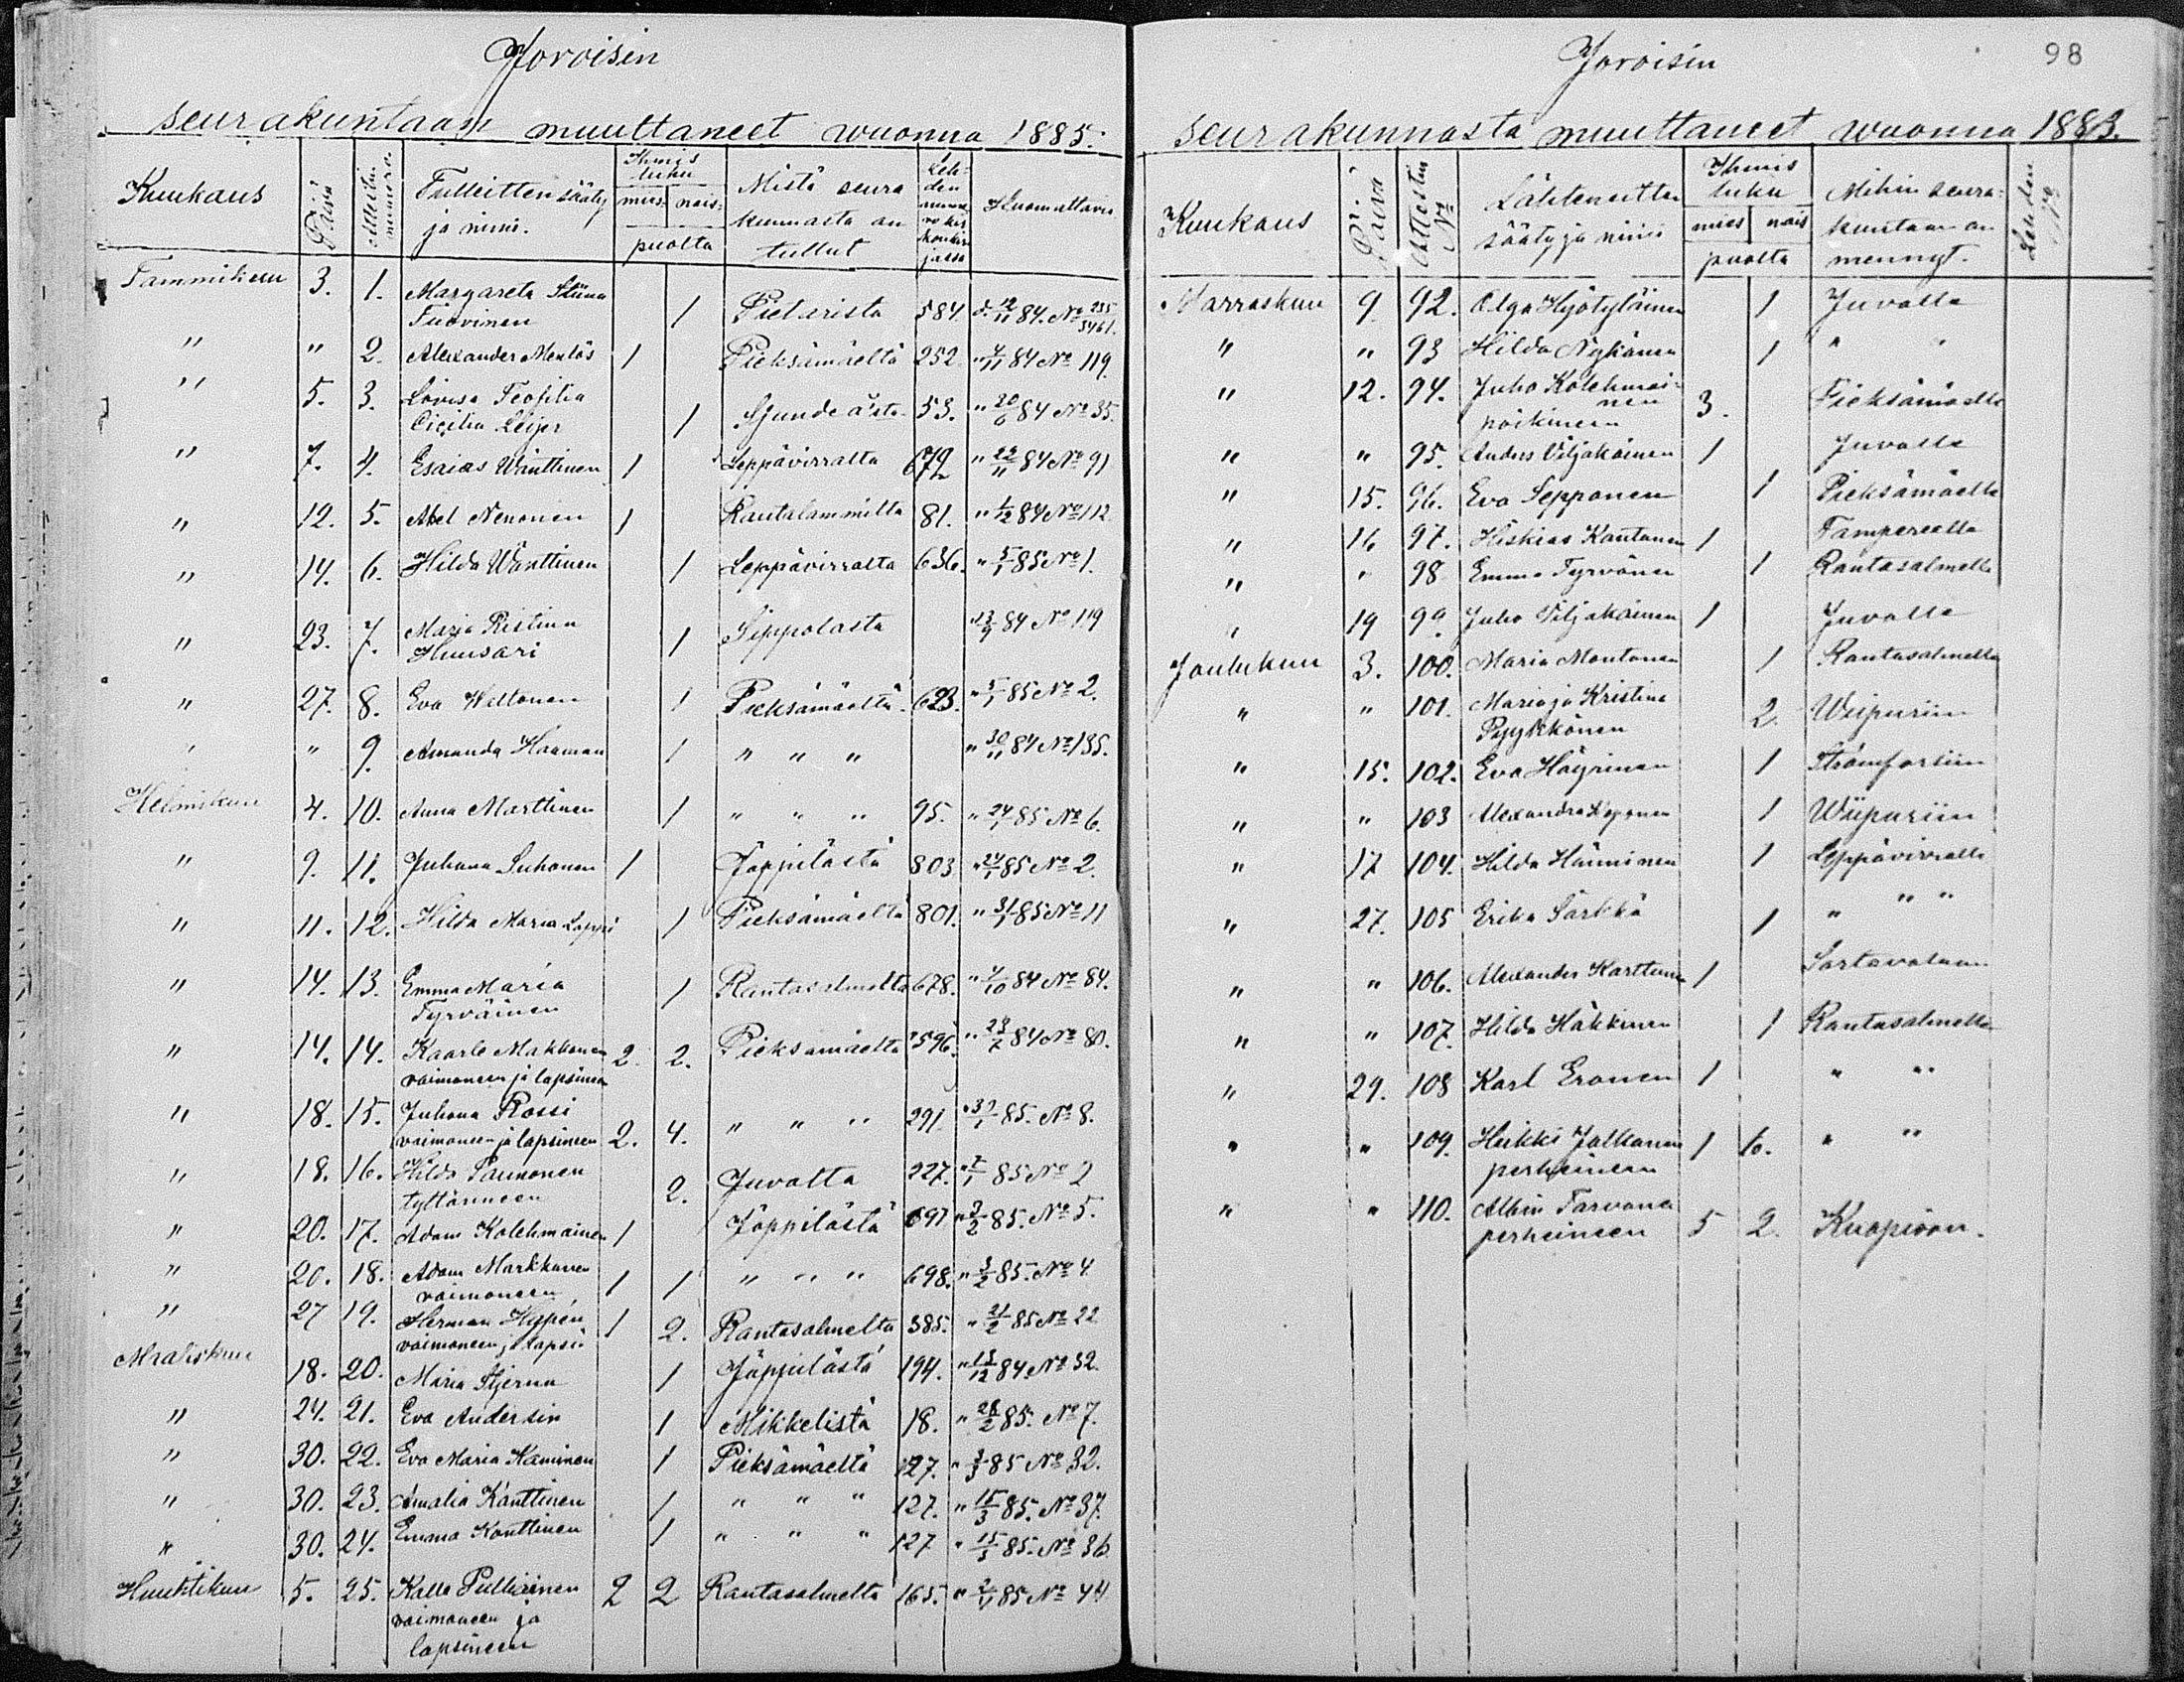 Joroisin
seurakuntaan muuttaneet wuonna 1885.
Kuukaus Päivä Attestin numero Tulleitten sääty ja nimi. Ihmis luku mies- nais- puolta Mistä seura kunnasta on tullut Huomattavia
Tammikuu 3. 1. Margareta Stiina
1 Pietarista 584. d. 12/11 84. No 235/3461.
" " 2. Alexander 1 Pieksämäeltä 252. " 4/11 84 No 119.
" 5. 3. Lovisa Teofilia
Cicilia Leijer 1 Sjundeåsta 53. " 20/6 84 No 35.
" 7. 4. Esaias Wänttinen 1 Leppävirralta " 22/11 84 No 91
" 12. 5. Abel Nenonen 1 Rautalammilta 81. " 1/12 84 No 112.
" 14. 6. Hilda Wänttinen 1 Leppävirralta 636. " 5/1 85 No 1.
" 23. 7. Maria Ristina
Huusari 1 Sippolasta " 13/9 84 No 119
" 27. 8. Eva Weltonen 1 Pieksämäeltä. 623. " 5/1 85 No 2.
" " 9. Amanda Haaman 1 " " " " 30/11 84 No 135.
Helmikuu 4. 10. Anna Marttinen 1 " " " 95. " 24/1 85 No 6.
" 9. 11. Juhana Suhonen 1 Jäppilästä 803 " 24/1 85 No 2.
" 11. 12. Hilda Maria Lappi 1 Pieksämäeltä 801. " 31/1 85 No 11
" 14. 13. Emma Maria
Tyrväinen 1 Rantasalmelta 678. " 4/10 84 No 84.
" 14. 14. Kaarle Makkonen 2. 2. Pieksämäeltä 596. " 28/7 84 No 80.
vaimoneen ja lapsineen
" 18. 15. Juhana Rossi
vaimoneen ja lapsineen 2. 4. " " " 291 " 85. No 8.
" 18. 16. Hilda Paunonen
tyttärineen 2. Juvalta 227. " 85 No 2
" 20. 17. Adam Kolehmainen 1 Jäppilästä 697 " 3/2 85. No 5.
" 20. 18. Adam Markkanen
vaimoneen 1 1 " " " 698. " 3/2 85. No 4
" 27 19. Herman Hypén
vaimoneen ja lapsi 1 2. Rantasalmelta 385. " 21/2 85 No 22
Maaliskuu 18. 20. Maria Stjerna 1 Jäppilästä 194. " 13/12 84. No 32.
" 24. 21. Eva Andersin 1 Mikkelistä 18. " 28/2 85. No 7.
" 30. 22. Eva Maria Kaminen 1 Pieksämäeltä 127. " 3/3 85 No 32.
" 30. 23. Amalia Känttinen 1 " " " 127. " 15/3 85. No 37.
" 30. 24. Emma Konttinen 1 " " " 127 " 15/3 85. No 36
Huuhtikuu 5. 25. Kalle Pulliainen 2 2 Rantasalmelta 165. " 85 No 44
vaimoneen ja
lapsineen
98
Joroisin
seurakunnasta muuttaneet wuonna 1883.
Kuukaus Päivä Attestin No Lähteneitten sääty ja nimi Ihmis luku mies nais puolta Mihin seura- kuntaan on mennyt.
Marraskuu 9. 92. Olga Hyötyläinen 1 Juvalle
" " 93 Hilda Nykänen 1 " "
" 12. 94. Juho Kolehmai-
nen
poikineen 3. Pieksämäelle
" " 95. Anders Viljakainen 1 Juvalle
" 15. 96. Eva Sepponen 1 Pieksämäelle
" 16 97. Hiskias Kautonen 1 Tampereelle
" " 98 Emma Tyrvänen 1 Rantasalmelle
" 19 99. Juho Viljakainen 1 Juvalle
Joulukuu 3. 100. Maria Montonen 1 Rantasalmelle
" " 101. Maria ja Kristina
Pyykkönen 2. Wiipuriin
" 15. 102. Eva Häyrinen 1 Strömforsiin
" " 103 Alexandra 1 Wiipuriin
" 17 104. Hilda Hänninen 1 Leppävirralle
" 27. 105 Erika Särkkä 1 " " "
" " 106. Alexander Karttunen 1 Sortavalaan
" " 107. Hilda Häkkinen 1 Rantasalmelle
" 29. 108 Karl Eronen 1 " "
" " 109. Heikki Jalkanen 1 6. " "
perheineen
" " 110. Albin Tarvonen
perheineen 5 2. Kuopioon.